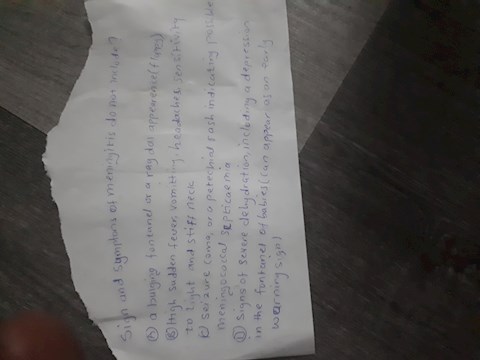 Sign and symptoms of meningitis do not include?
(A) a bulging fontanel or a rag doll appearance (flimsy)
(B) High sudden fever, vomitting, headaches, sensitivity
to light and stiff neck
(C) seizure, coma, or a petechial rash indicating possible
meningococcal septicaemia
(D) signs of severe dehydration, including a depression
in the fontanel of babies (can appear as an early
warning sign)